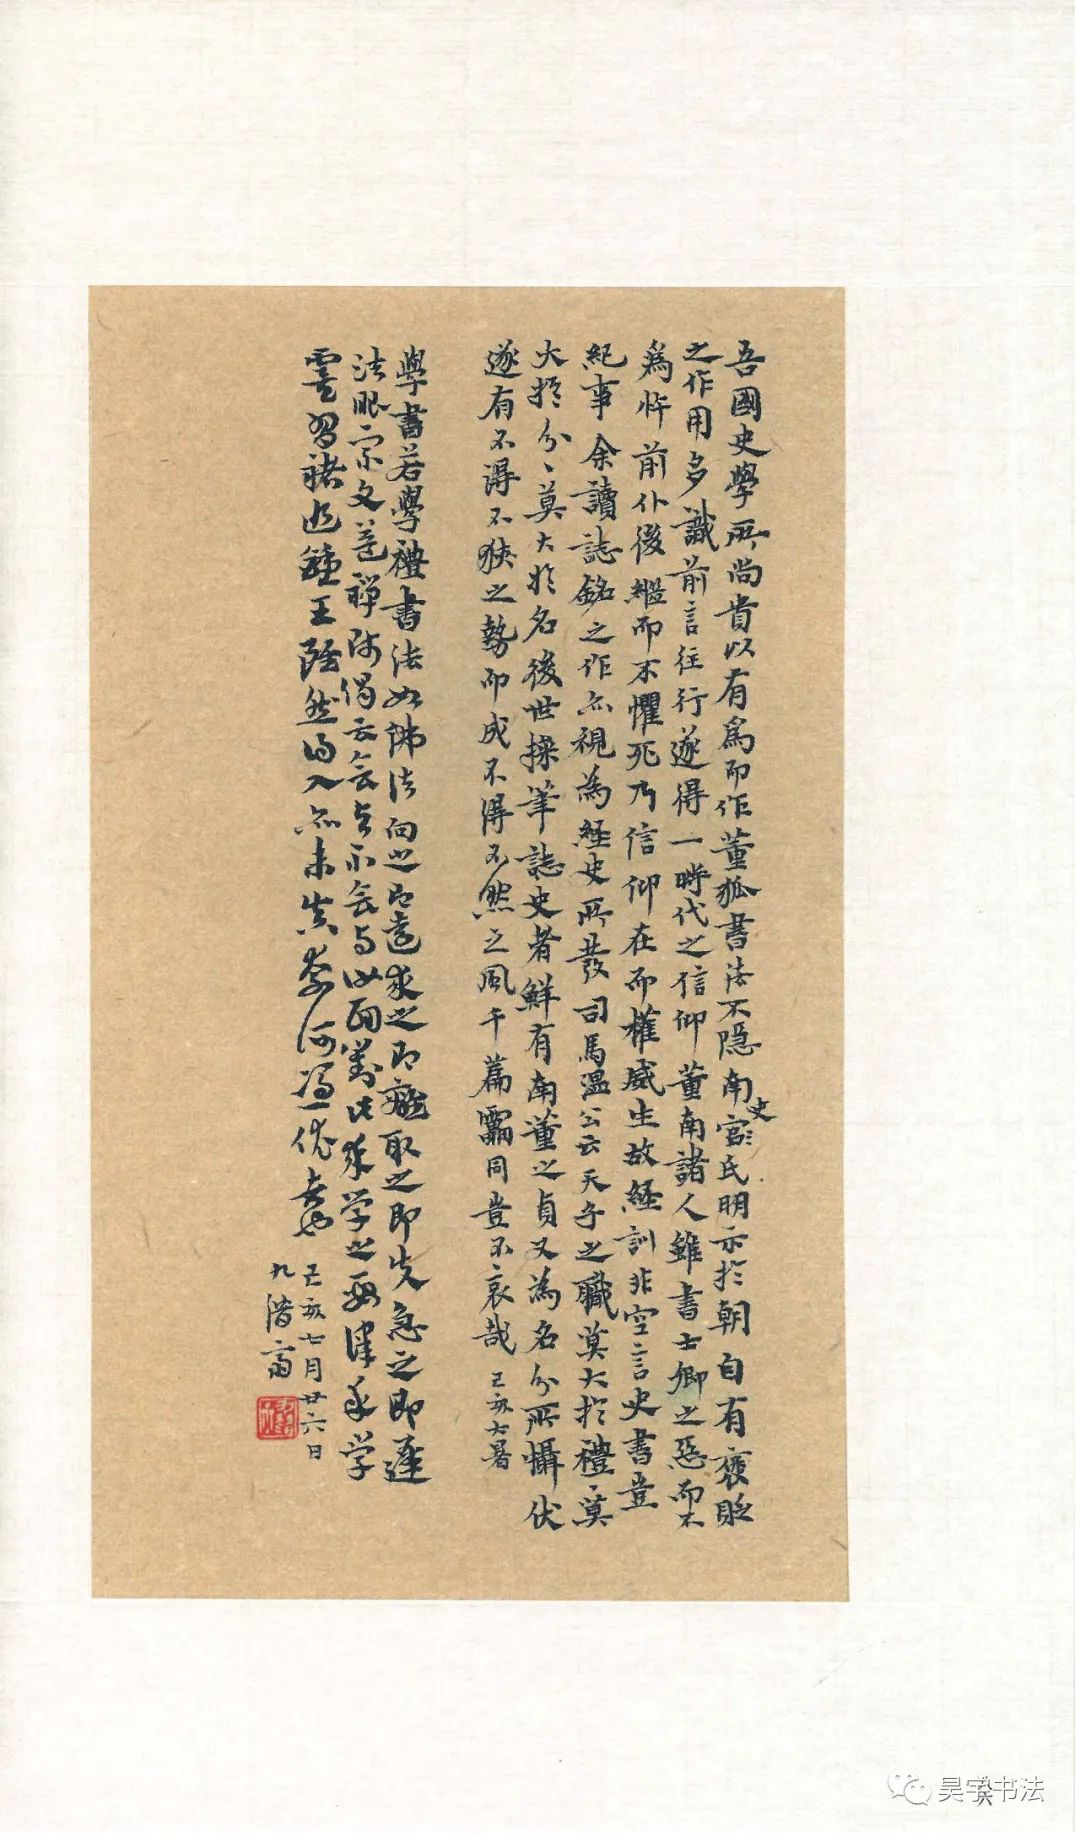 吾國史學所尚貴以有為而作董狐書法不隱南史官氏明示於朝自有褒貶
之作用多識前言往行遂得一時代之信仰董南諸人雖書士卿之惡而不
為忤前仆後繼而不懼死乃信仰在而權威生故經訓非空言史書豈
紀事余讀誌銘之作亦視為經史所發司馬溫公云天子之職莫大於禮、莫
大於分、莫大於名後世操筆誌史者鮮有南董之貞又為名分所懾伏
遂有不得不狹之勢而成不得不然之風千篇一同豈不哀哉 己亥大暑
學書若學禮書法如佛法向之即遠求之即離取之即失急之即遲
法眼宗文益禪師偈云會與不會與汝面對此求學之要津承學
習褚追鍾王雖然得入亦未失奈何
己亥七月廿六日
九潛齋
八六
昊宇书法